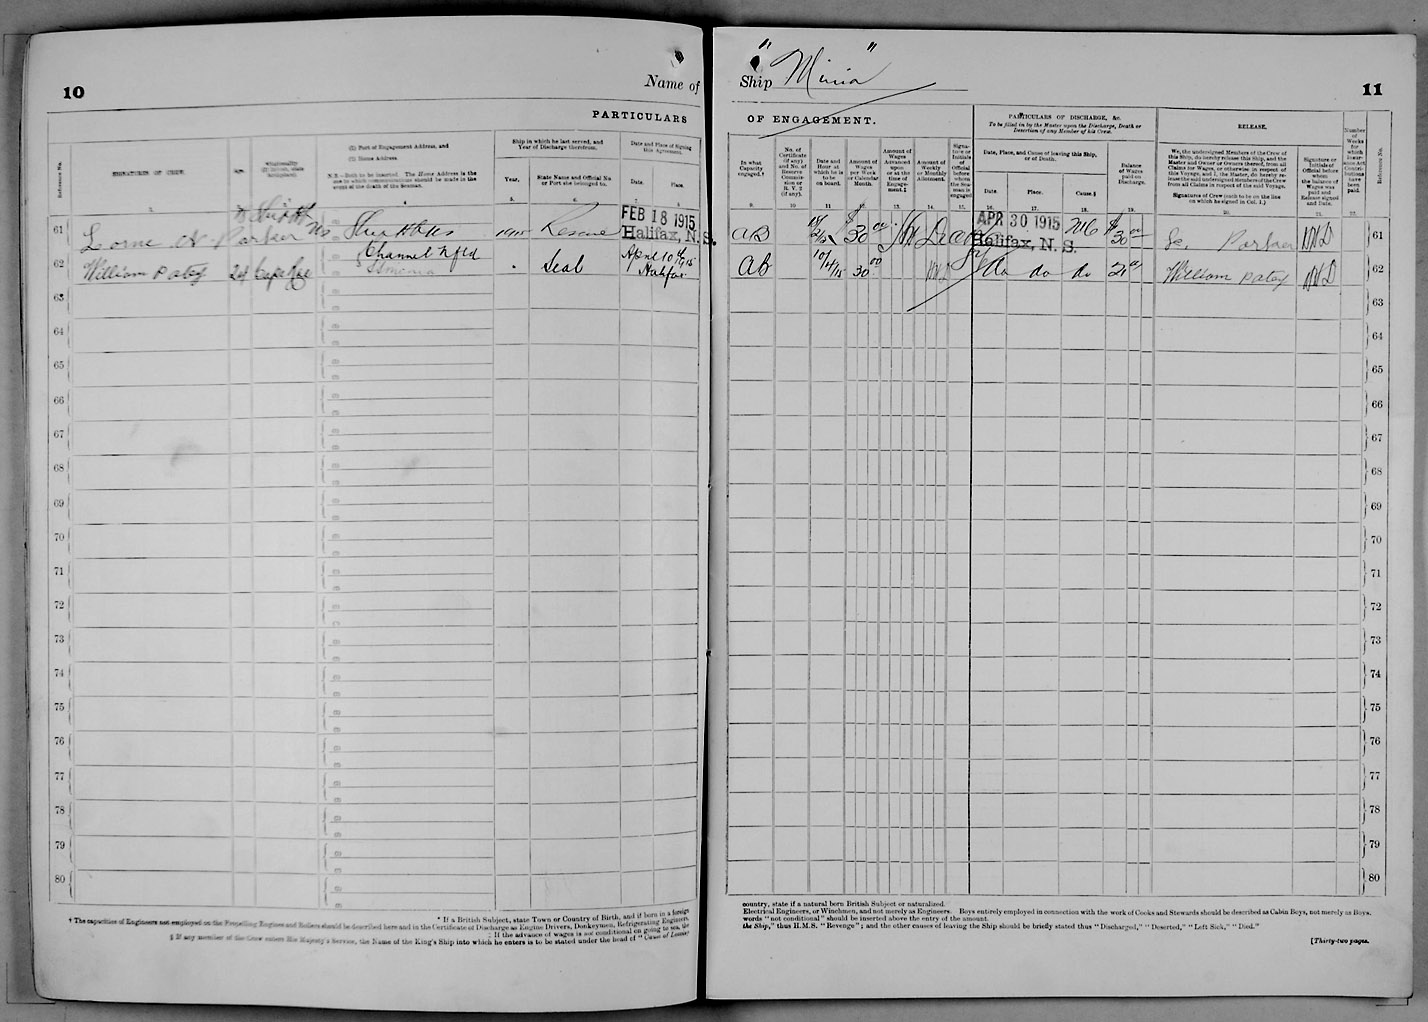 10
Name of
PARTICULARS
Reference No.
SIGNATURES OF CREW.
Age.
*Nationality
(If British, state
birthplace).
(1) Port of Engagement Address, and
(2) Home Address.
N.B.—Both to be inserted. The Home Address is the
one to which communications should be made in the
event of the death of the Seaman.
Ship in which he last served, and
Year of Discharge therefrom.
Year.
State Name and Official No.
or Port she belonged to.
Date and Place of Signing
this Agreement.
Date.
Place.
61 Lorne Parker NS 1915 Rescue FEB 18 1915
Halifax, N. S.
Channel Nfld
62 William Patey 24 Seal April 10th 15
Halifax
63
64
65
66
67
68
69
70
71
72
73
74
75
76
77
78
79
80
* If a British Subject, state Town or Country of Birth, and if born in a foreign
† The capacities of Engineers not employed on the Propelling Engines and Boilers should be described here and in the Certificate of Discharge as Engine Drivers, Donkeymen, Refrigerating Engineers,
‡ If the advance of wages is not conditional on going to sea, the
§ If any member of the Crew enters His Majesty's Service, the Name of the King's Ship into which he enters is to be stated under the head of "Cause of Leaving
Ship "Minia"
11
OF ENGAGEMENT.
PARTICULARS OF DISCHARGE, &c.
To be filled in by the Master upon the Discharge, Death or
Desertion of any Member of his Crew.
RELEASE.
In what
Capacity
engaged.†
No. of
Certificate
(if any)
and No. of
Reserve
Commis-
sion or
R. V. 2
(if any).
Date and
Hour at
which he is
to be
on board.
Amount of
Wages
per Week
or Calendar
Month.
Amount of
Wages
Advanced
upon
or at the
time of
Engage-
ment.‡
Amount of
Weekly
or Monthly
Allotment.
Signa-
ture or
Initials
of
Official
before
whom
the Sea-
man is
engaged
Date, Place, and Cause of leaving this Ship,
or of Death.
Date.
Place.
Cause.§
Balance
of Wages
paid on
Discharge.
We, the undersigned Members of the Crew of
this Ship, do hereby release this Ship, and the
Master and Owner or Owners thereof, from all
Claims for Wages, or otherwise in respect of
this Voyage, and I, the Master, do hereby re-
lease the said undersigned Members of the Crew
from all Claims in respect of the said Voyage.
Signatures of Crew (each to be on the line
on which he signed in Col. 1.)
Signature or
Initials of
Official before
whom
the balance of
Wages was
paid and
Release signed
and Date.
Number
of
Weeks
for
which
Insur-
ance Act
Contri-
butions
have
been
paid.
Reference No.
9. 10. 11. 12. 13. 14. 15. 16. 17. 18. 19. 20. 21. 22.
AB 18/2/15 $30 00 APR 30 1915 $30 00 Parker 61
Halifax, N. S.
AB 10/4/15 30 00 do do do 21 William Patey 62
63
64
65
66
67
68
69
70
71
72
73
74
75
76
77
78
79
80
country, state if a natural born British Subject or naturalized.
Electrical Engineers, or Winchmen, and not merely as Engineers. Boys entirely employed in connection with the work of Cooks and Stewards should be described as Cabin Boys, not merely as Boys.
words "not conditional" should be inserted above the entry of the amount.
the Ship," thus H.M.S. "Revenge"; and the other causes of leaving the Ship should be briefly stated thus "Discharged," "Deserted," "Left Sick," "Died."
[Thirty-two pages.